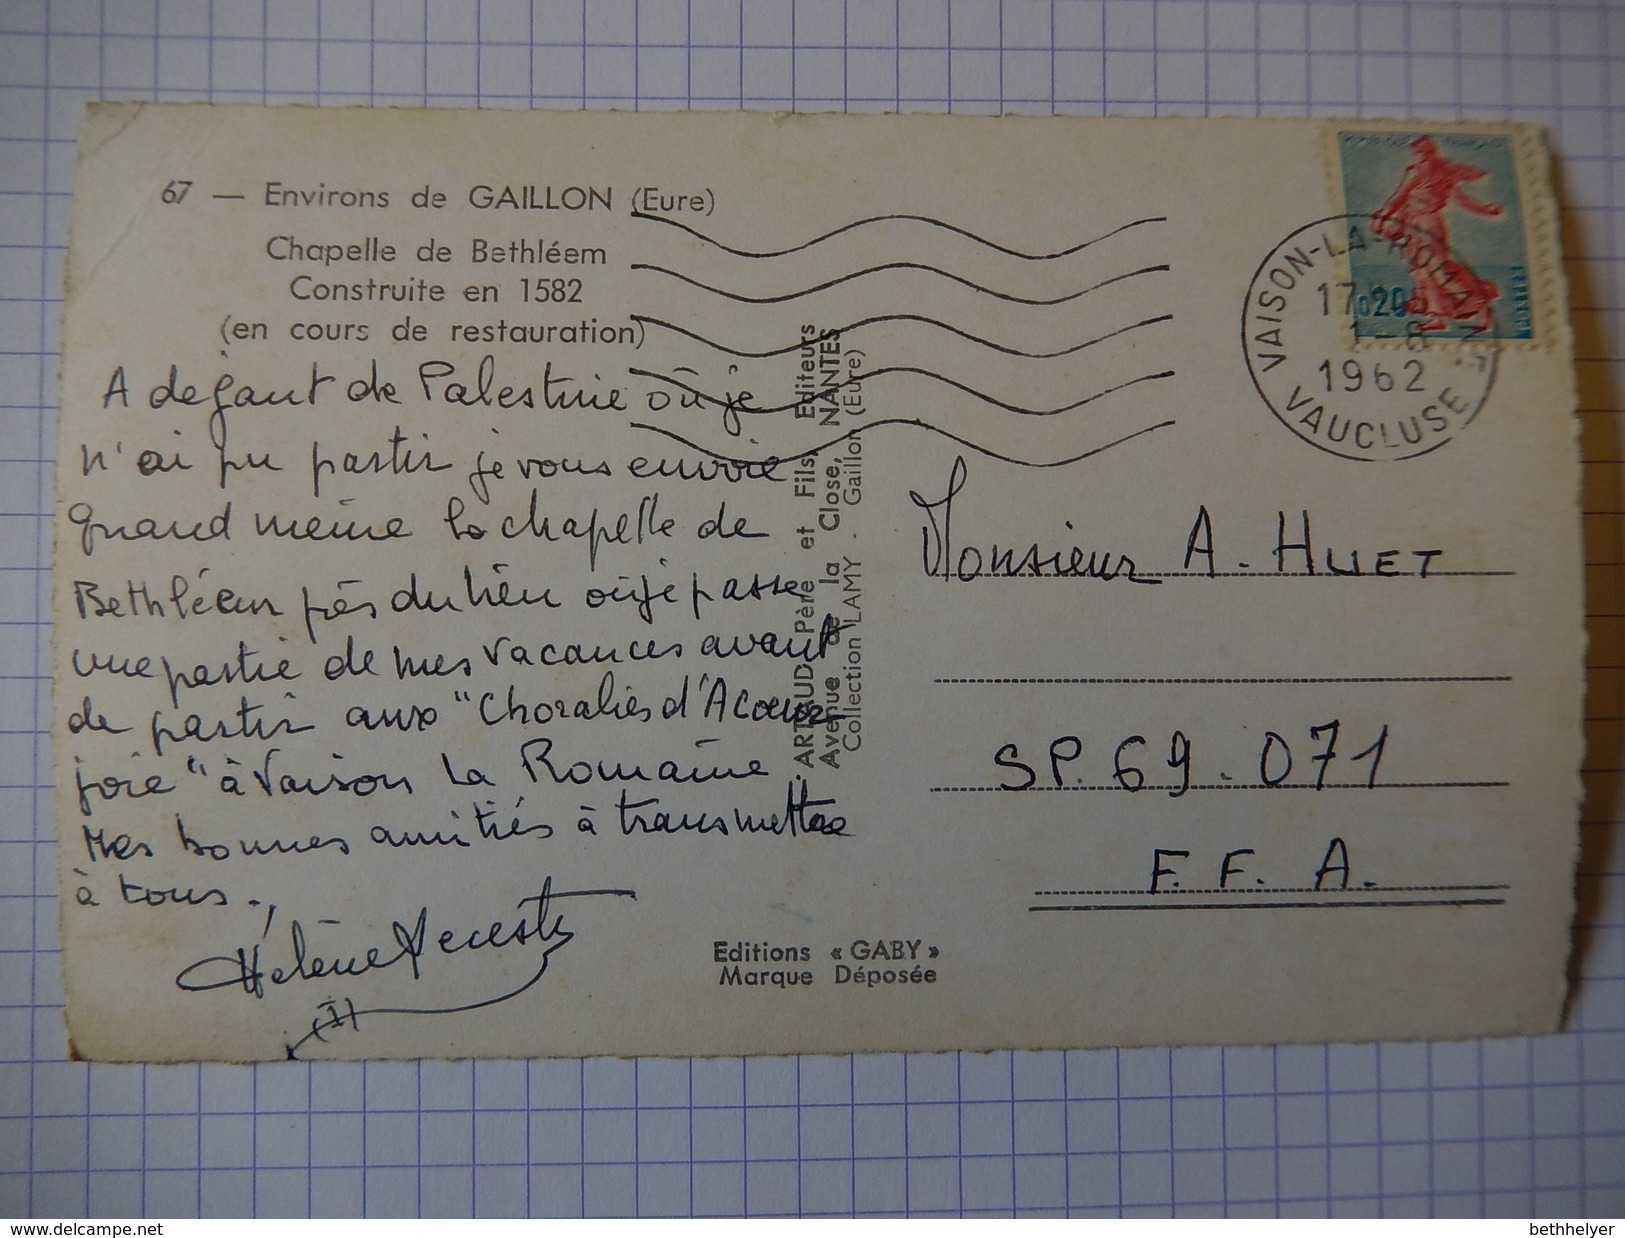 67 — Environs de GAILLON (Eure)
Chapelle de Bethléem
Construite en 1582
(en cours de restauration)
A defaut de Palestine où je
n'ai pu partir je vous envoie
quand même la chapelle de
Bethléem près du lieu où je passe
une partie de mes vacances avant
de partir aux "Choralies d'A Coeur
joie" à Vaison la Romaine.
Mes bonnes amitiés à transmettre
à tous.
Hélène
ARTAUD Père et Fils, Editeurs
Avenue de la Close, NANTES
Collection LAMY - Gaillon (Eure)
Editions « GABY »
Marque Déposée
0,20
VAISON-LA-ROMAINE
17
1-8
1962
VAUCLUSE
Monsieur A. HUET
SP. 69.071
F. F. A.
www.delcampe.net
bethhelyer